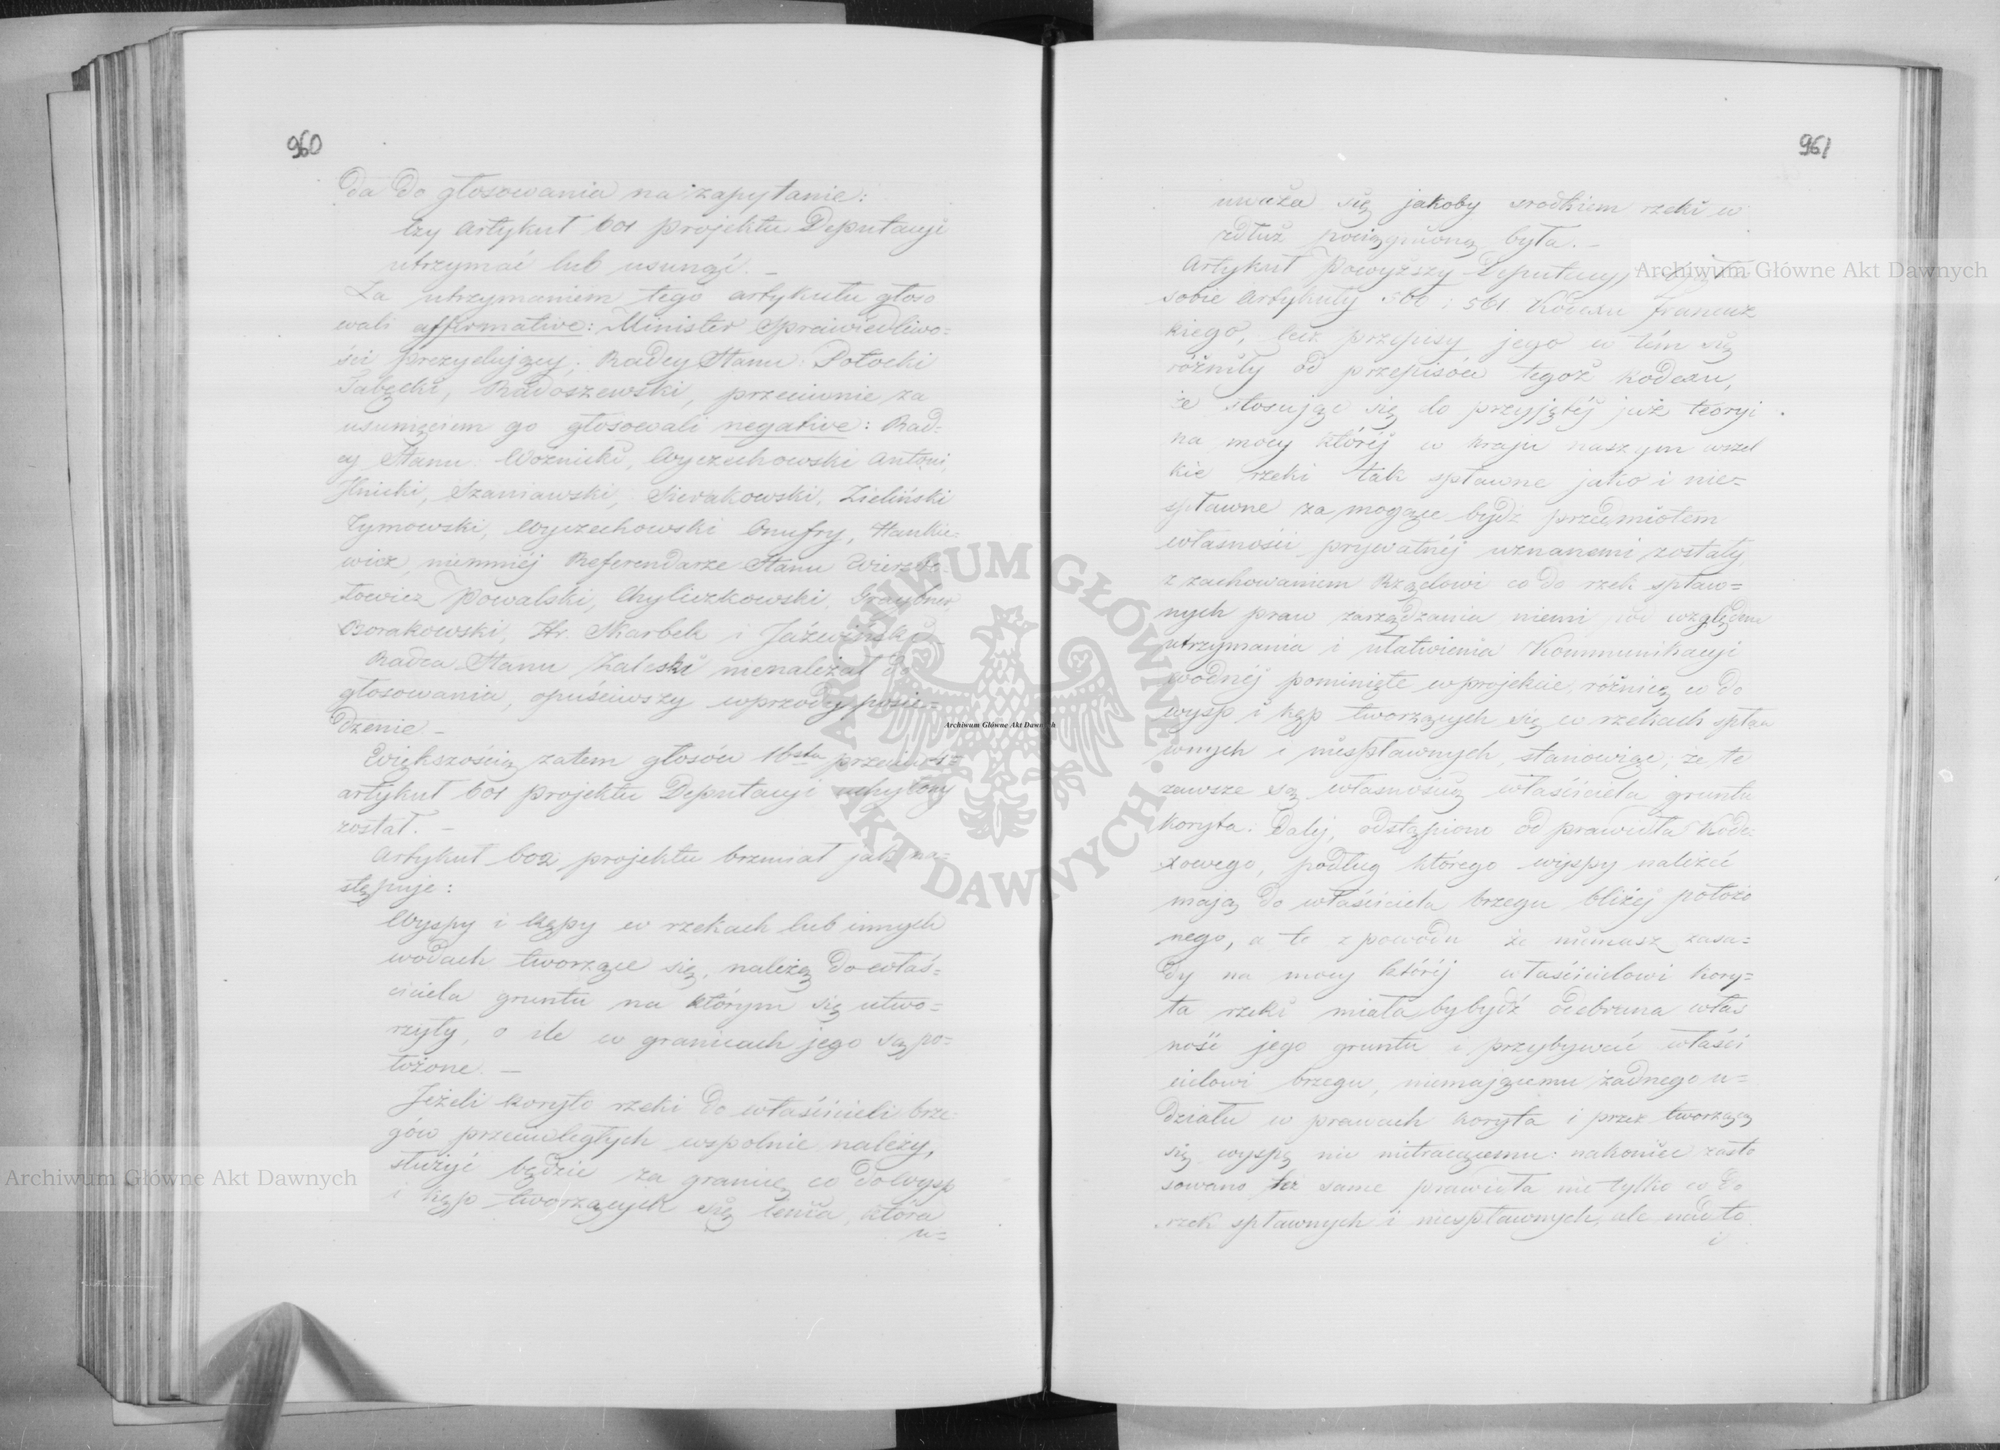 960
da do głosowania na zapytanie:
Czy Artykuł 601 projektu Deputacyi
utrzymać lub usunąć. —
Za utrzymaniem tego artykułu głoso
wali affirmative: Minister Sprawiedliwo=
ści prezydujący; Radcy Stanu: Potocki
Radoszewski, przeciwnie za
usunięciem go głosowali negative: Rad=
cy Stanu Woźnicki, Wyczechowski Antoni,
Hnicki, Szaniawski, Sierakowski, Zieliński
Tymowski, Wyczechowski Onufry, Hankie=
wicz, niemniéj Referendarze Stanu
Powalski, Chyliczkowski, Graybner
Borakowski, Hr. Skarbek i Jaźwiński.
Radca Stanu Zaleski nienależał do
głosowania, opuściwszy wprzódy posie=
dzenie —
Większością zatem głosów 16stu przeciw 4:
artykuł 601 projektu Deputacyi uchylony
został. —
Artykuł 602 projektu brzmiał jak na=
stępuje:
Wyspy i kępy w rzekach lub innych
wodach tworzące się, należą do właś=
ciciela gruntu na którym się utwo=
rzyły, o ile w granicach jego są po=
łożone. —
Jeżeli koryto rzeki do właścicieli brze=
gów przeciwległych wspolnie należy,
służyć będzie za granicę co do wysp
i kęp tworzących się linia, która
u=
961
uważa się jakoby srodkiem rzeki w
zdłuż pociągniona była. —
Artykuł powyższy Deputacyi,
sobie Artykuły 560 i 561 Kodexu francuz
kiego, lecz przepisy jego w tém się
różniły od przepisów tegoż kodexu,
że stosując się do przyjętéj już teoryi
na mocy któréj w kraju naszym wszel
kie rzeki tak spławne jako i nie=
spławne za mogące bydź przedmiotem
własności prywatnéj uznanemi zostały,
z zachowaniem Rządowi co do rzek spław=
nych praw zarządzania niemi we względzie
utrzymania i ułatwienia Kommunikacyi
wodnéj pominięte w projekcie, różnicę co do
wysp i kęp tworzących się w rzekach spła
wnych i niespławnych, stanowiąc, że te
zawsze są własnością właściciela gruntu
koryta. Daléj, odstąpiono od prawidła Kode=
xowego, podług którego wyspy należeć
mają do właściciela brzegu bliżéj położo
nego, a to z powodu że niémasz zasa=
dy na mocy któréj właścicielowi kory=
ta rzeki miałaby bydź odebrana włas
ność jego gruntu i przybywać właści
cielowi brzegu, niemającemu żadnego u=
działu w prawach koryta i przez tworzącą
się wyspę nic nietracącemu: nakoniec zasto
sowano też same prawidła nie tylko co do
rzek spławnych i niespławnych, ale nadto
i
Archiwum Główne Akt Dawnych
Archiwum Główne Akt Dawnych
Archiwum Główne Akt Dawnych
ARCHIWUM GŁÓWNE AKT DAWNYCH